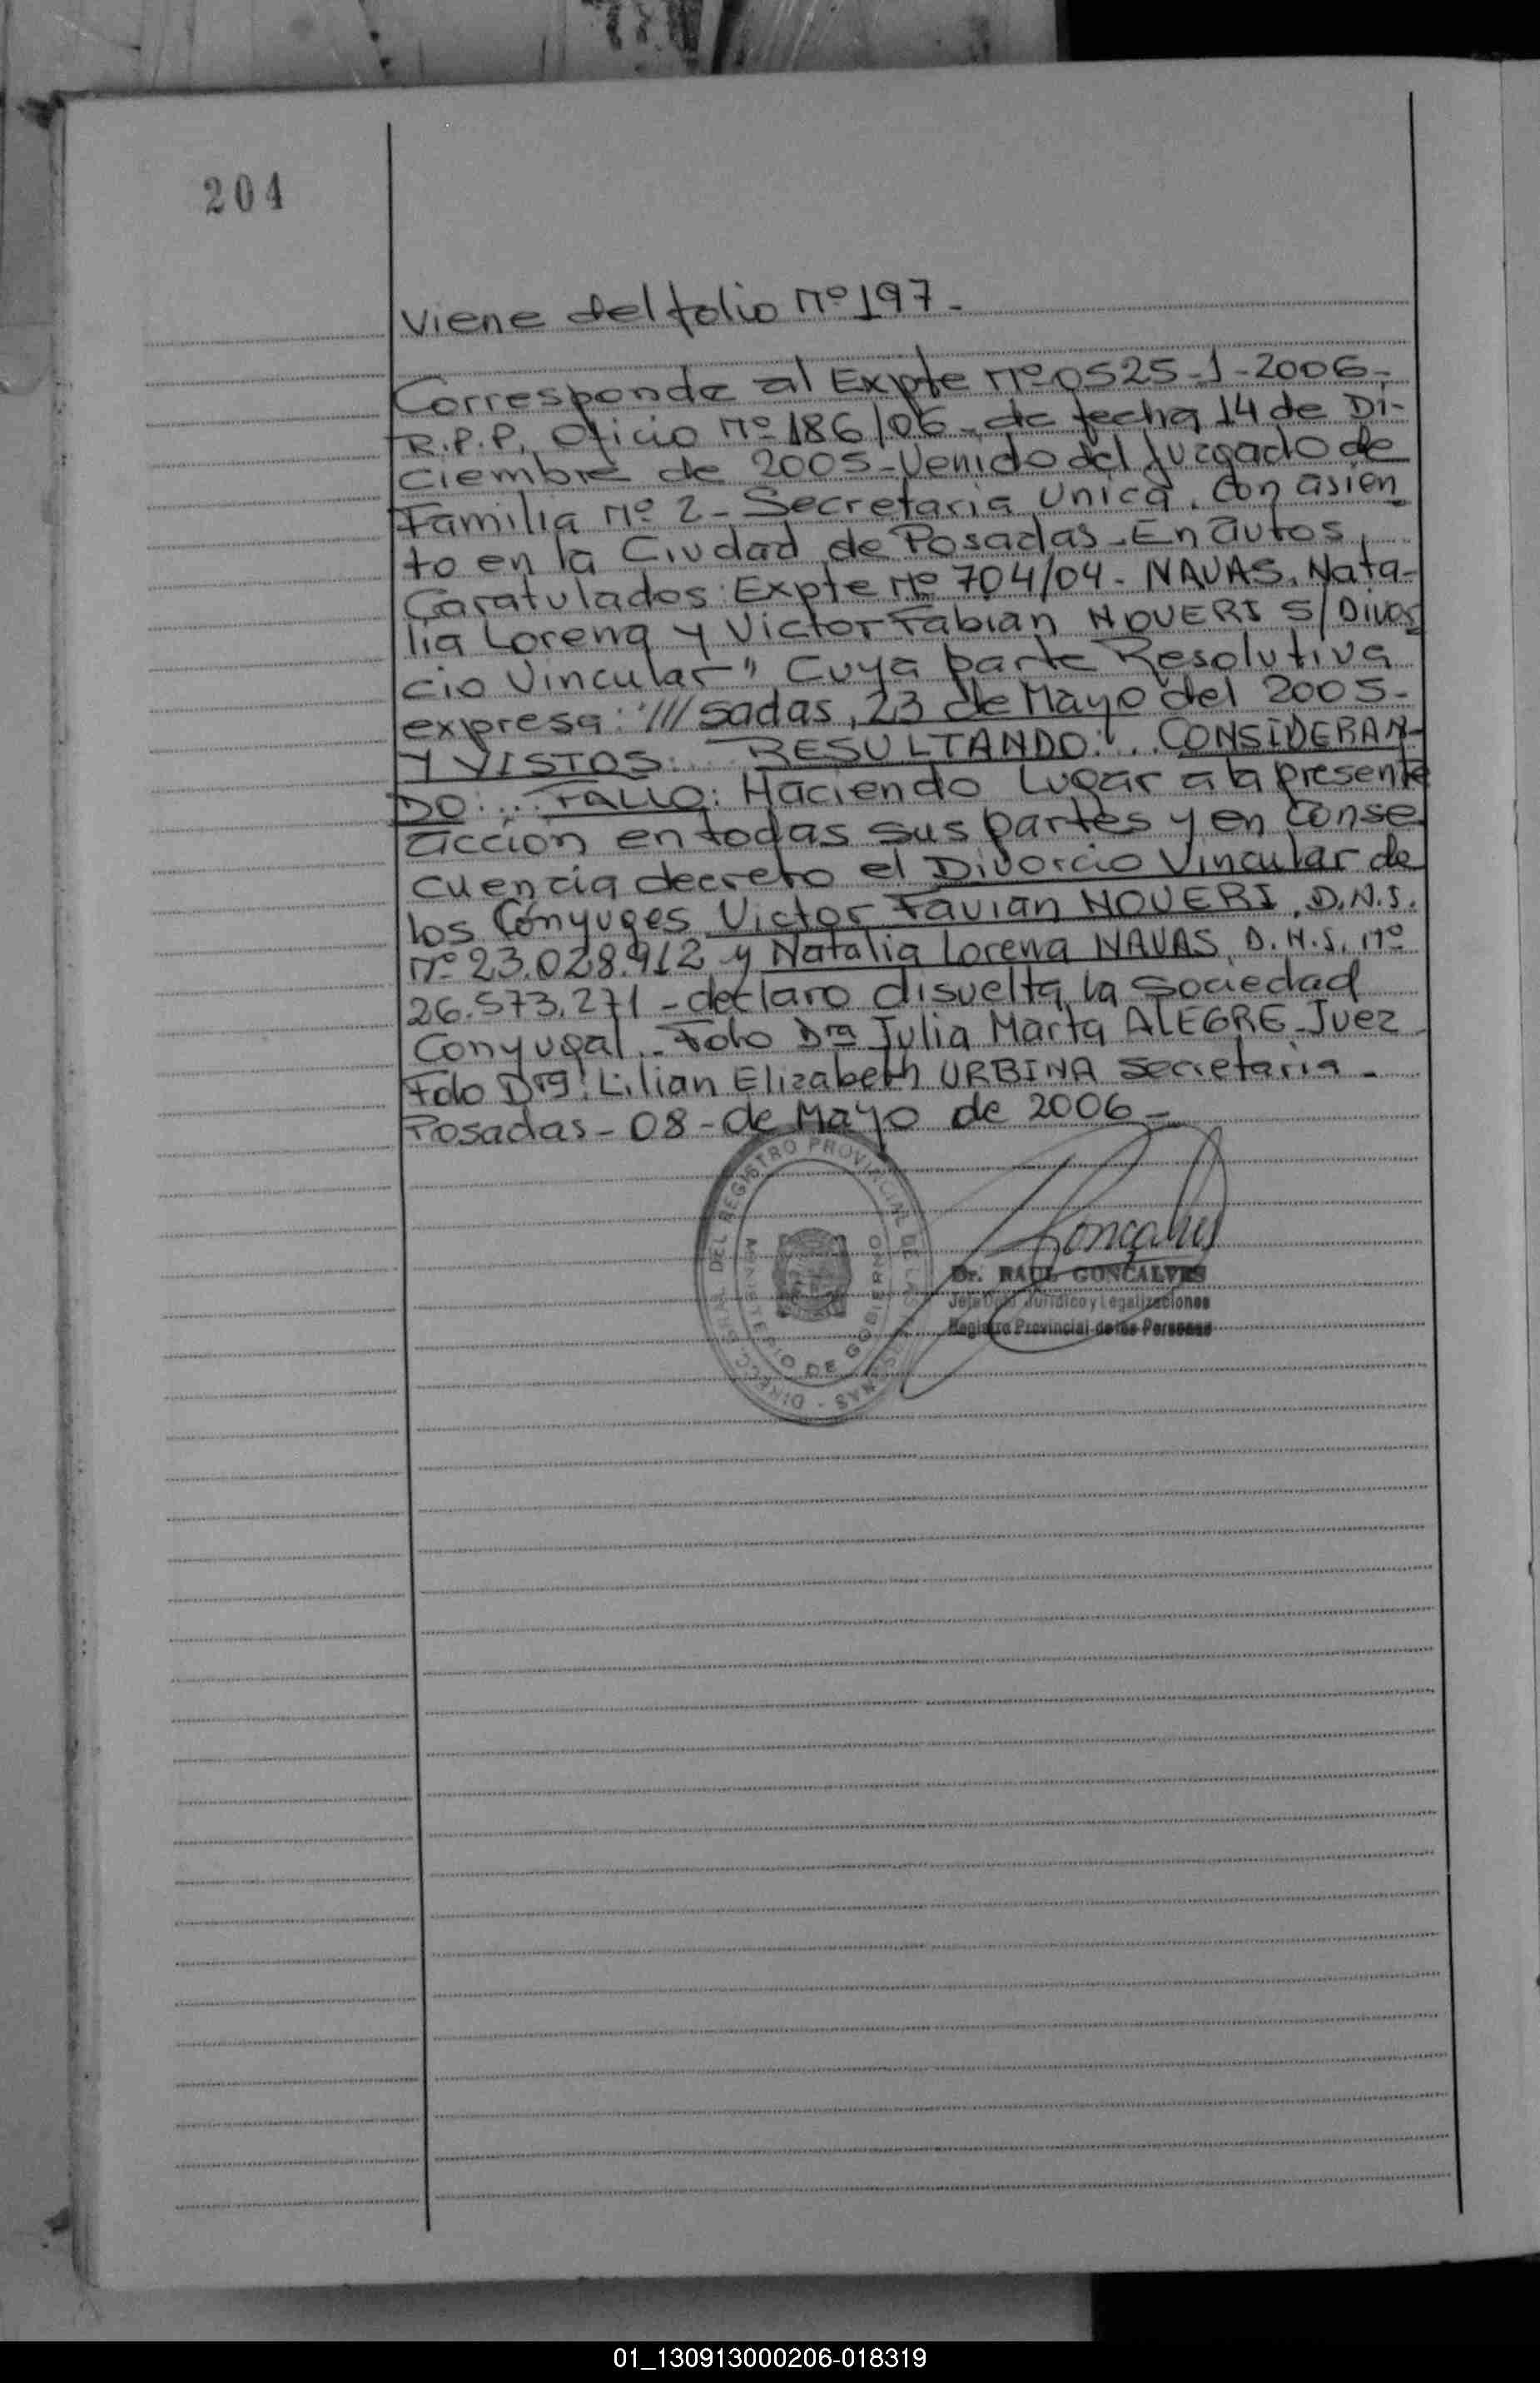 204
Viene del folio Nº 197-
Corresponde al Expte Nº 0525-1-2006-
R.P.P. Oficio Nº 186/06-de fecha 14 de Di-
ciembre de 2005-Venido del Juzgado de
Familia Nº 2-Secretaria Unica. Con asien
to en la Ciudad de Posadas-En autos
Caratulados: Expte Nº 704/04- NAVAS, Nata-
lia Lorena y Victor Fabian NOVERI S/Divor
cio Vincular" Cuya parte Resolutiva
expresa: "///sadas, 23 de Mayo del 2005-
Y VISTOS:... RESULTANDO:... CONSIDERAN-
DO:... FALLO: Haciendo Lugar a la presente
acción en todas sus partes y en conse
cuencia decreto el Divorcio Vincular de
los Cónyuges Victor Favian NOVERI, D.N.I.
Nº 23.028.912 y Natalia Lorena NAVAS, D.N.I. Nº
26.573.271-declaro disuelta la Sociedad
Conyugal.- Fdo Dra Julia Marta ALEGRE-Juez
Fdo Dra: Lilian Elizabeth URBINA Secretaria-
Posadas-08-de Mayo de 2006-
DIRECC. GRAL. DEL REGISTRO PROVINCIAL DE LAS PERSONAS -
MINISTERIO DE GOBIERNO
Goncalves
Dr. RAUL GONCALVES
Jefe Dpto Jurídico y Legalizaciones
Registro Provincial de las Personas
01_130913000206-018319